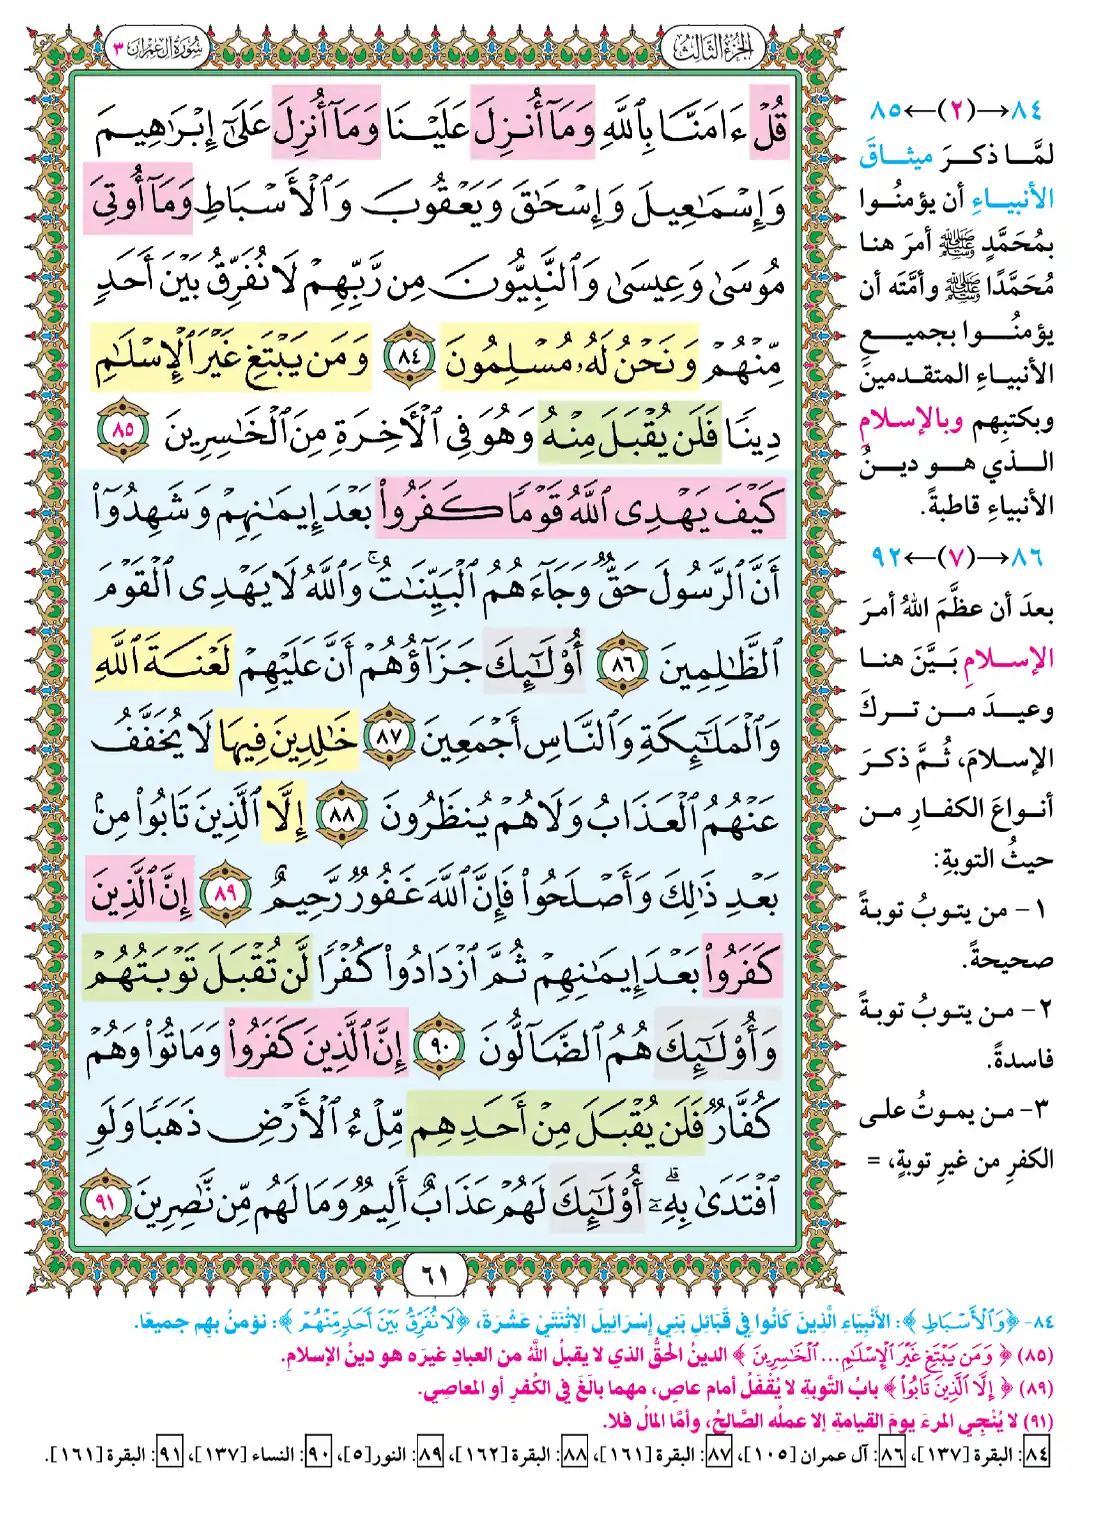 الجزء الثالث
سورة آل عمران ٣
قُلْ ءَامَنَّا بِٱللَّهِ وَمَآ أُنزِلَ عَلَيْنَا وَمَآ أُنزِلَ عَلَىٰٓ إِبْرَٰهِيمَ
وَإِسْمَٰعِيلَ وَإِسْحَٰقَ وَيَعْقُوبَ وَٱلْأَسْبَاطِ وَمَآ أُوتِىَ
مُوسَىٰ وَعِيسَىٰ وَٱلنَّبِيُّونَ مِن رَّبِّهِمْ لَا نُفَرِّقُ بَيْنَ أَحَدٍ
مِّنْهُمْ وَنَحْنُ لَهُۥ مُسْلِمُونَ ٨٤ وَمَن يَبْتَغِ غَيْرَ ٱلْإِسْلَٰمِ
دِينًا فَلَن يُقْبَلَ مِنْهُ وَهُوَ فِى ٱلْأَخِرَةِ مِنَ ٱلْخَٰسِرِينَ ٨٥
كَيْفَ يَهْدِى ٱللَّهُ قَوْمًا كَفَرُوا۟ بَعْدَ إِيمَٰنِهِمْ وَشَهِدُوٓا۟
أَنَّ ٱلرَّسُولَ حَقٌّ وَجَآءَهُمُ ٱلْبَيِّنَٰتُ ۚ وَٱللَّهُ لَا يَهْدِى ٱلْقَوْمَ
ٱلظَّٰلِمِينَ ٨٦ أُو۟لَٰٓئِكَ جَزَآؤُهُمْ أَنَّ عَلَيْهِمْ لَعْنَةَ ٱللَّهِ
وَٱلْمَلَٰٓئِكَةِ وَٱلنَّاسِ أَجْمَعِينَ ٨٧ خَٰلِدِينَ فِيهَا لَا يُخَفَّفُ
عَنْهُمُ ٱلْعَذَابُ وَلَا هُمْ يُنظَرُونَ ٨٨ إِلَّا ٱلَّذِينَ تَابُوا۟ مِنۢ
بَعْدِ ذَٰلِكَ وَأَصْلَحُوا۟ فَإِنَّ ٱللَّهَ غَفُورٌ رَّحِيمٌ ٨٩ إِنَّ ٱلَّذِينَ
كَفَرُوا۟ بَعْدَ إِيمَٰنِهِمْ ثُمَّ ٱزْدَادُوا۟ كُفْرًا لَّن تُقْبَلَ تَوْبَتُهُمْ
وَأُو۟لَٰٓئِكَ هُمُ ٱلضَّآلُّونَ ٩٠ إِنَّ ٱلَّذِينَ كَفَرُوا۟ وَمَاتُوا۟ وَهُمْ
كُفَّارٌ فَلَن يُقْبَلَ مِنْ أَحَدِهِم مِّلْءُ ٱلْأَرْضِ ذَهَبًا وَلَوِ
ٱفْتَدَىٰ بِهِۦٓ ۗ أُو۟لَٰٓئِكَ لَهُمْ عَذَابٌ أَلِيمٌ وَمَا لَهُم مِّن نَّٰصِرِينَ ٩١
٦١
٨٤→(٢)←٨٥
لمَّا ذكرَ ميثاقَ
الأنبياءِ أن يؤمنُوا
بمُحَمَّدٍ ﷺ أمرَ هنا
مُحَمَّدًا ﷺ وأمَّتَه أن
يؤمنُوا بجميعِ
الأنبياءِ المتقدمينَ
وبكتبِهم وبالإسلامِ
الذي هو دينُ
الأنبياءِ قاطبةً.
٨٦→(٧)←٩٢
بعدَ أن عظَّمَ اللهُ أمرَ
الإسلامِ بَيَّنَ هنا
وعيدَ من تركَ
الإسلامَ، ثُمَّ ذكرَ
أنواعَ الكفارِ من
حيثُ التوبةِ:
١- من يتوبُ توبةً
صحيحةً.
٢- من يتوبُ توبةً
فاسدةً.
٣- من يموتُ على
الكفرِ من غيرِ توبةٍ، =
٨٤- ﴿وَٱلْأَسْبَاطِ﴾: الأَنْبِيَاءِ الَّذِينَ كَانُوا فِي قَبَائِلِ بَنِي إِسْرَائِيلَ الِاثْنَتَيْ عَشْرَةَ، ﴿لَا نُفَرِّقُ بَيْنَ أَحَدٍ مِّنْهُمْ﴾: نؤمنُ بهم جميعًا.
(٨٥) ﴿وَمَن يَبْتَغِ غَيْرَ ٱلْإِسْلَٰمِ... ٱلْخَٰسِرِينَ﴾ الدينُ الحقُّ الذي لا يقبلُ اللهُ من العبادِ غيرَه هو دينُ الإسلامِ.
(٨٩) ﴿إِلَّا ٱلَّذِينَ تَابُوا۟﴾ بابُ التَّوبةِ لا يُقْفَلُ أمام عاصٍ، مهما بالَغَ في الكُفرِ أو المعاصِي.
(٩١) لا يُنْجِي المرءَ يومَ القيامةِ إلا عملُه الصَّالحُ، وأمَّا المالُ فلا.
٨٤: البقرة [١٣٧]، ٨٦: آل عمران [١٠٥]، ٨٧: البقرة [١٦١]، ٨٨: البقرة [١٦٢]، ٨٩: النور [٥]، ٩٠: النساء [١٣٧]، ٩١: البقرة [١٦١].